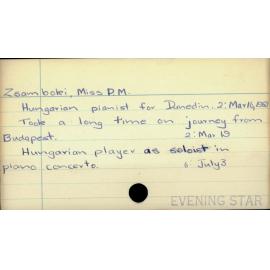 Zsamboki, Miss D.M.
Hungarian pianist for Dunedin. 2: Mar 16, 1957
Took a long time on journey from
Budapest. 2: Mar 19
Hungarian player as soloist in
piano concerto. 6: July 3
EVENING STAR